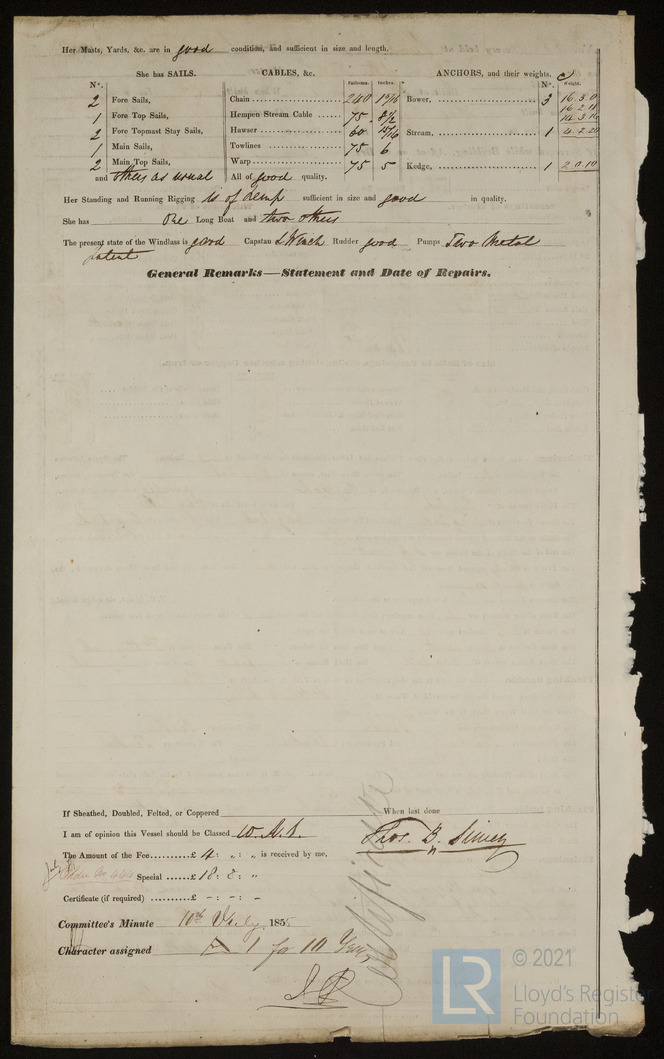 Her Masts, Yards, &c. are in good condition, and sufficient in size and length.
She has SAILS. CABLES, &c. Fathoms. Inches. ANCHORS, and their weights.
N°. N°. Weight.
2 Fore Sails, Chain 240 Bower, 3 16.3.0
1 Fore Top Sails, Hempen Stream Cable 75 8½ 16.2.
2 Fore Topmast Stay Sails, Hawser 15/16 Stream, 1
1 Main Sails, Towlines 75 6
2 Main Top Sails, Warp 75 5 Kedge, 1 2.0.10
and others as usual All of good quality.
Her Standing and Running Rigging is of Hemp sufficient in size and good in quality.
She has One Long Boat and two others
The present state of the Windlass is good Capstan & Winch Rudder good Pumps Two Metal
patent
General Remarks—Statement and Date of Repairs.
If Sheathed, Doubled, Felted, or Coppered When last done
I am of opinion this Vessel should be Classed 10. A. 1.
Thos. B. Simey
The Amount of the Fee £ 4: „: „ is received by me,
Special £ 18: 8: „
Certificate (if required) £ -: -: -
Committee's Minute 10th July 1855
Character assigned A 1 for 10 Years
© 2021
LR
Lloyd's Register
Foundation